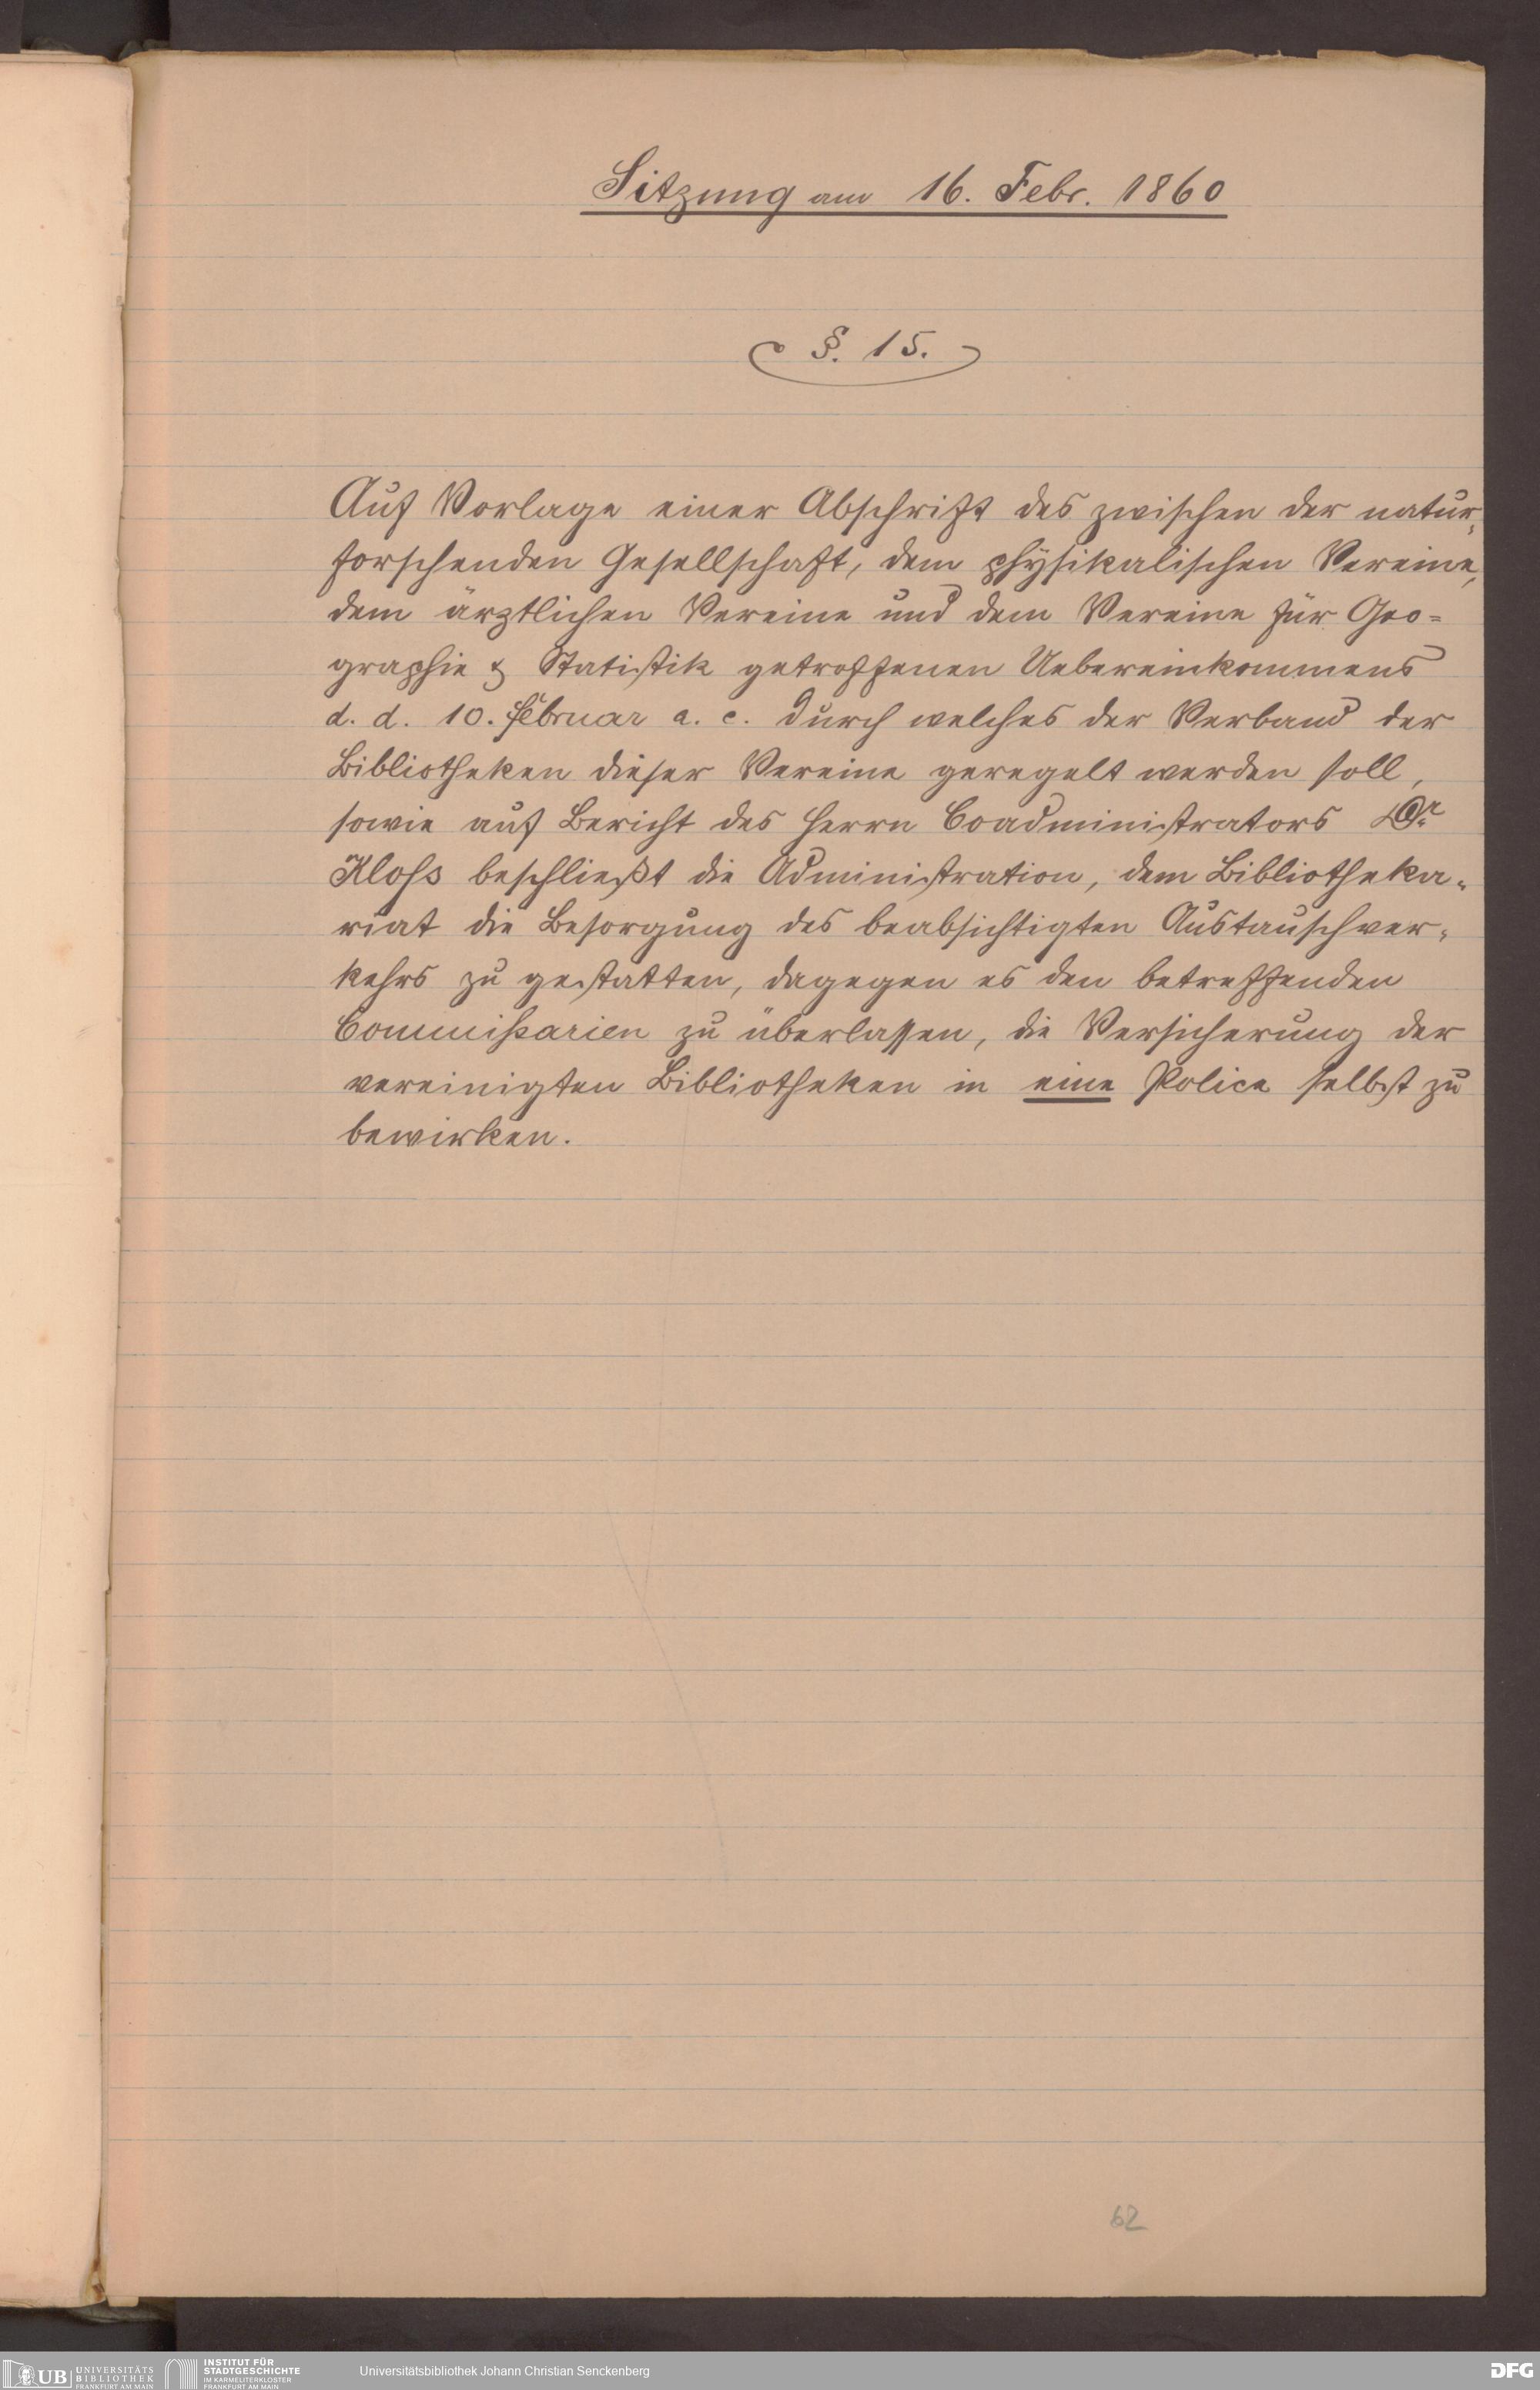 Sitzung am 16. Febr. 1860
§. 15.
Auf Vorlage einer Abschrift des zwischen der natur-
forschenden Gesellschaft, dem physikalischen Vereine,
dem ärztlichen Vereine und dem Vereine für Geo=
graphie & Statistik getroffenen Uebereinkommens
d. d. 10. Februar a. c. durch welches der Verband der
Bibliotheken dieser Vereine geregelt werden soll,
sowie auf Bericht des Herrn Coadministrators Dr.
Kloss beschließt die Administration, dem Bibliotheka-
riat die Besorgung des beabsichtigten Austauschver-
kehrs zu gestatten, dagegen es den betreffenden
Commißarien zu überlassen, die Versicherung der
vereinigten Bibliotheken in eine Police selbst zu
bewirken.
62
UB UNIVERSITÄTS
BIBLIOTHEK
FRANKFURT AM MAIN
INSTITUT FÜR
STADTGESCHICHTE
IM KARMELITERKLOSTER
FRANKFURT AM MAIN
Universitätsbibliothek Johann Christian Senckenberg
DFG